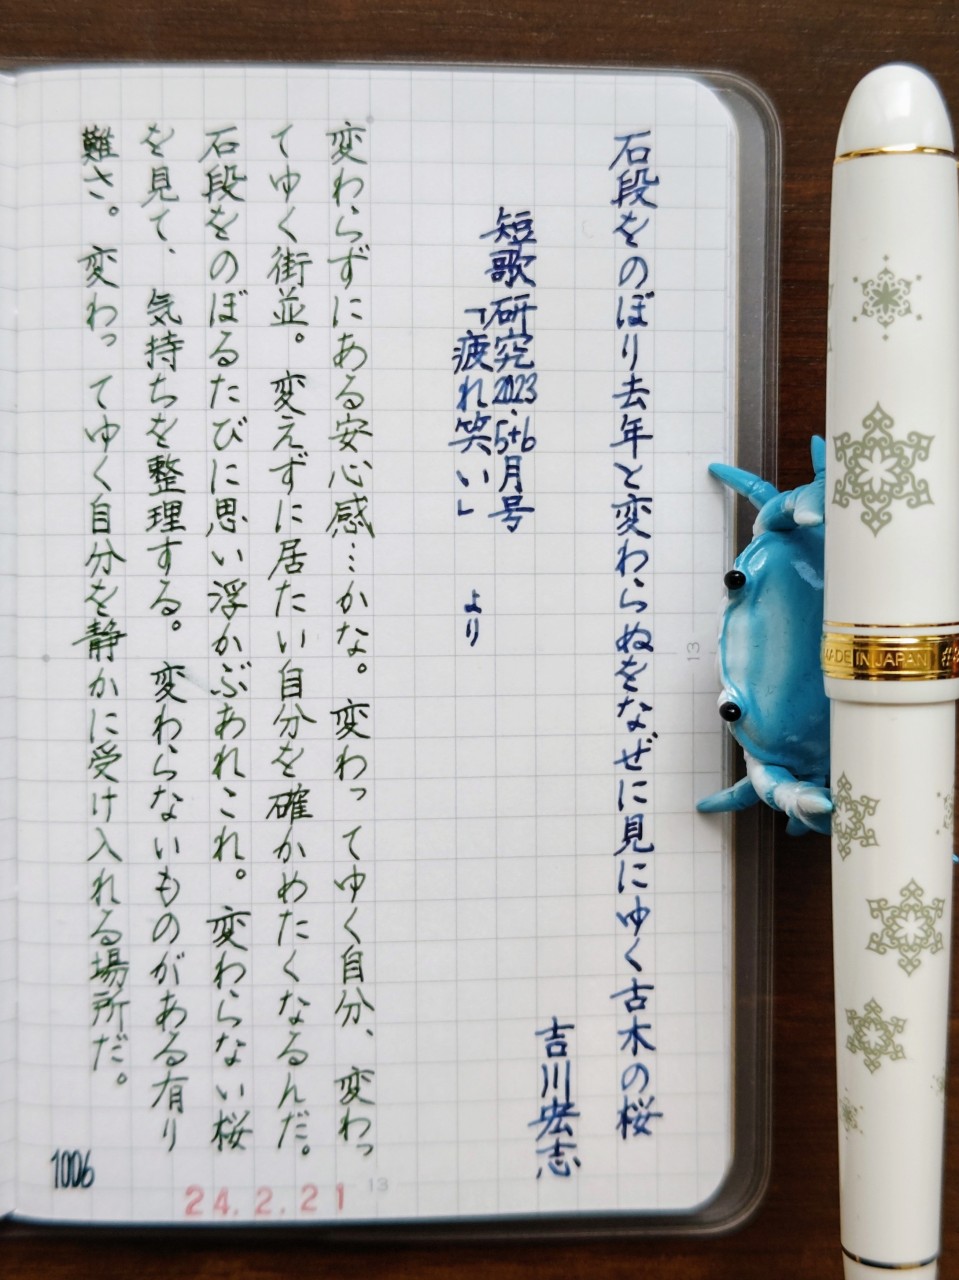 石段をのぼり去年と変わらぬをなぜに見にゆく古木の桜
吉川宏志
短歌研究2023.5+6月号
「疲れ笑い」 より
変わらずにある安心感…かな。変わってゆく自分、変わっ
てゆく街並。変えずに居たい自分を確かめたくなるんだ。
石段をのぼるたびに思い浮かぶあれこれ。変わらない桜
を見て、気持ちを整理する。変わらないものがある有り
難さ。変わってゆく自分を静かに受け入れる場所だ。
1006
24.2.21
13
13
MADE IN JAPAN